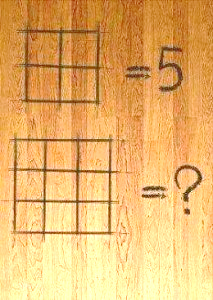 =5
=?